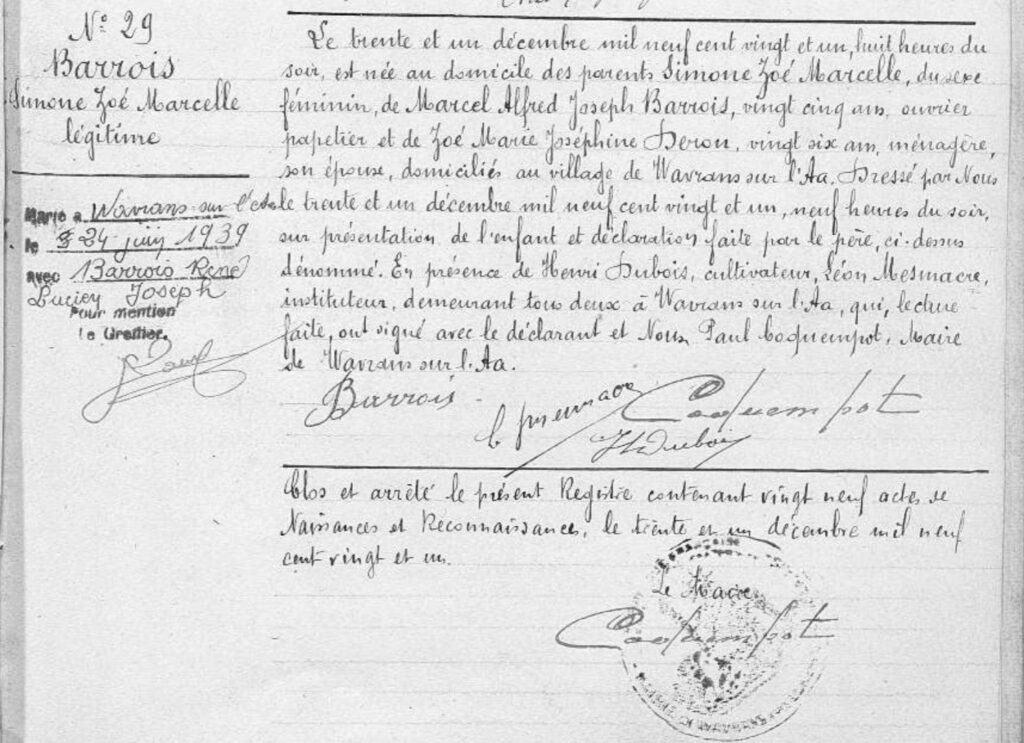 N° 29
Barrois
Simone Zoé Marcelle
légitime
Marié à Wavrans-sur l'Aa
le 24 juin 1939
avec Barrois René
Lucien Joseph
Pour mention
le Greffier.
Le trente et un décembre mil neuf cent vingt et un, huit heures du
soir, est née au domicile des parents Simone Zoé Marcelle, du sexe
féminin, de Marcel Alfred Joseph Barrois, vingt cinq ans, ouvrier
papetier et de Zoé Marie Joséphine Deron, vingt six ans, ménagère,
son épouse, domiciliés au village de Wavrans sur l'Aa. Dressé par Nous
le trente et un décembre mil neuf cent vingt et un, neuf heures du soir,
sur présentation de l'enfant et déclaration faite par le père, ci-dessus
dénommé. En présence de Henri Dubois, cultivateur, Léon Mesmacre,
instituteur, demeurant tous deux à Wavrans sur l'Aa, qui, lecture
faite, ont signé avec le déclarant et Nous, Paul Coquempot, Maire
de Wavrans sur l'Aa.
Barrois
Coquempot
H Dubois
Clos et arrêté le présent Registre contenant vingt neuf actes de
Naissances et Reconnaissance, le trente et un décembre mil neuf
cent vingt et un.
Le Maire
Coquempot